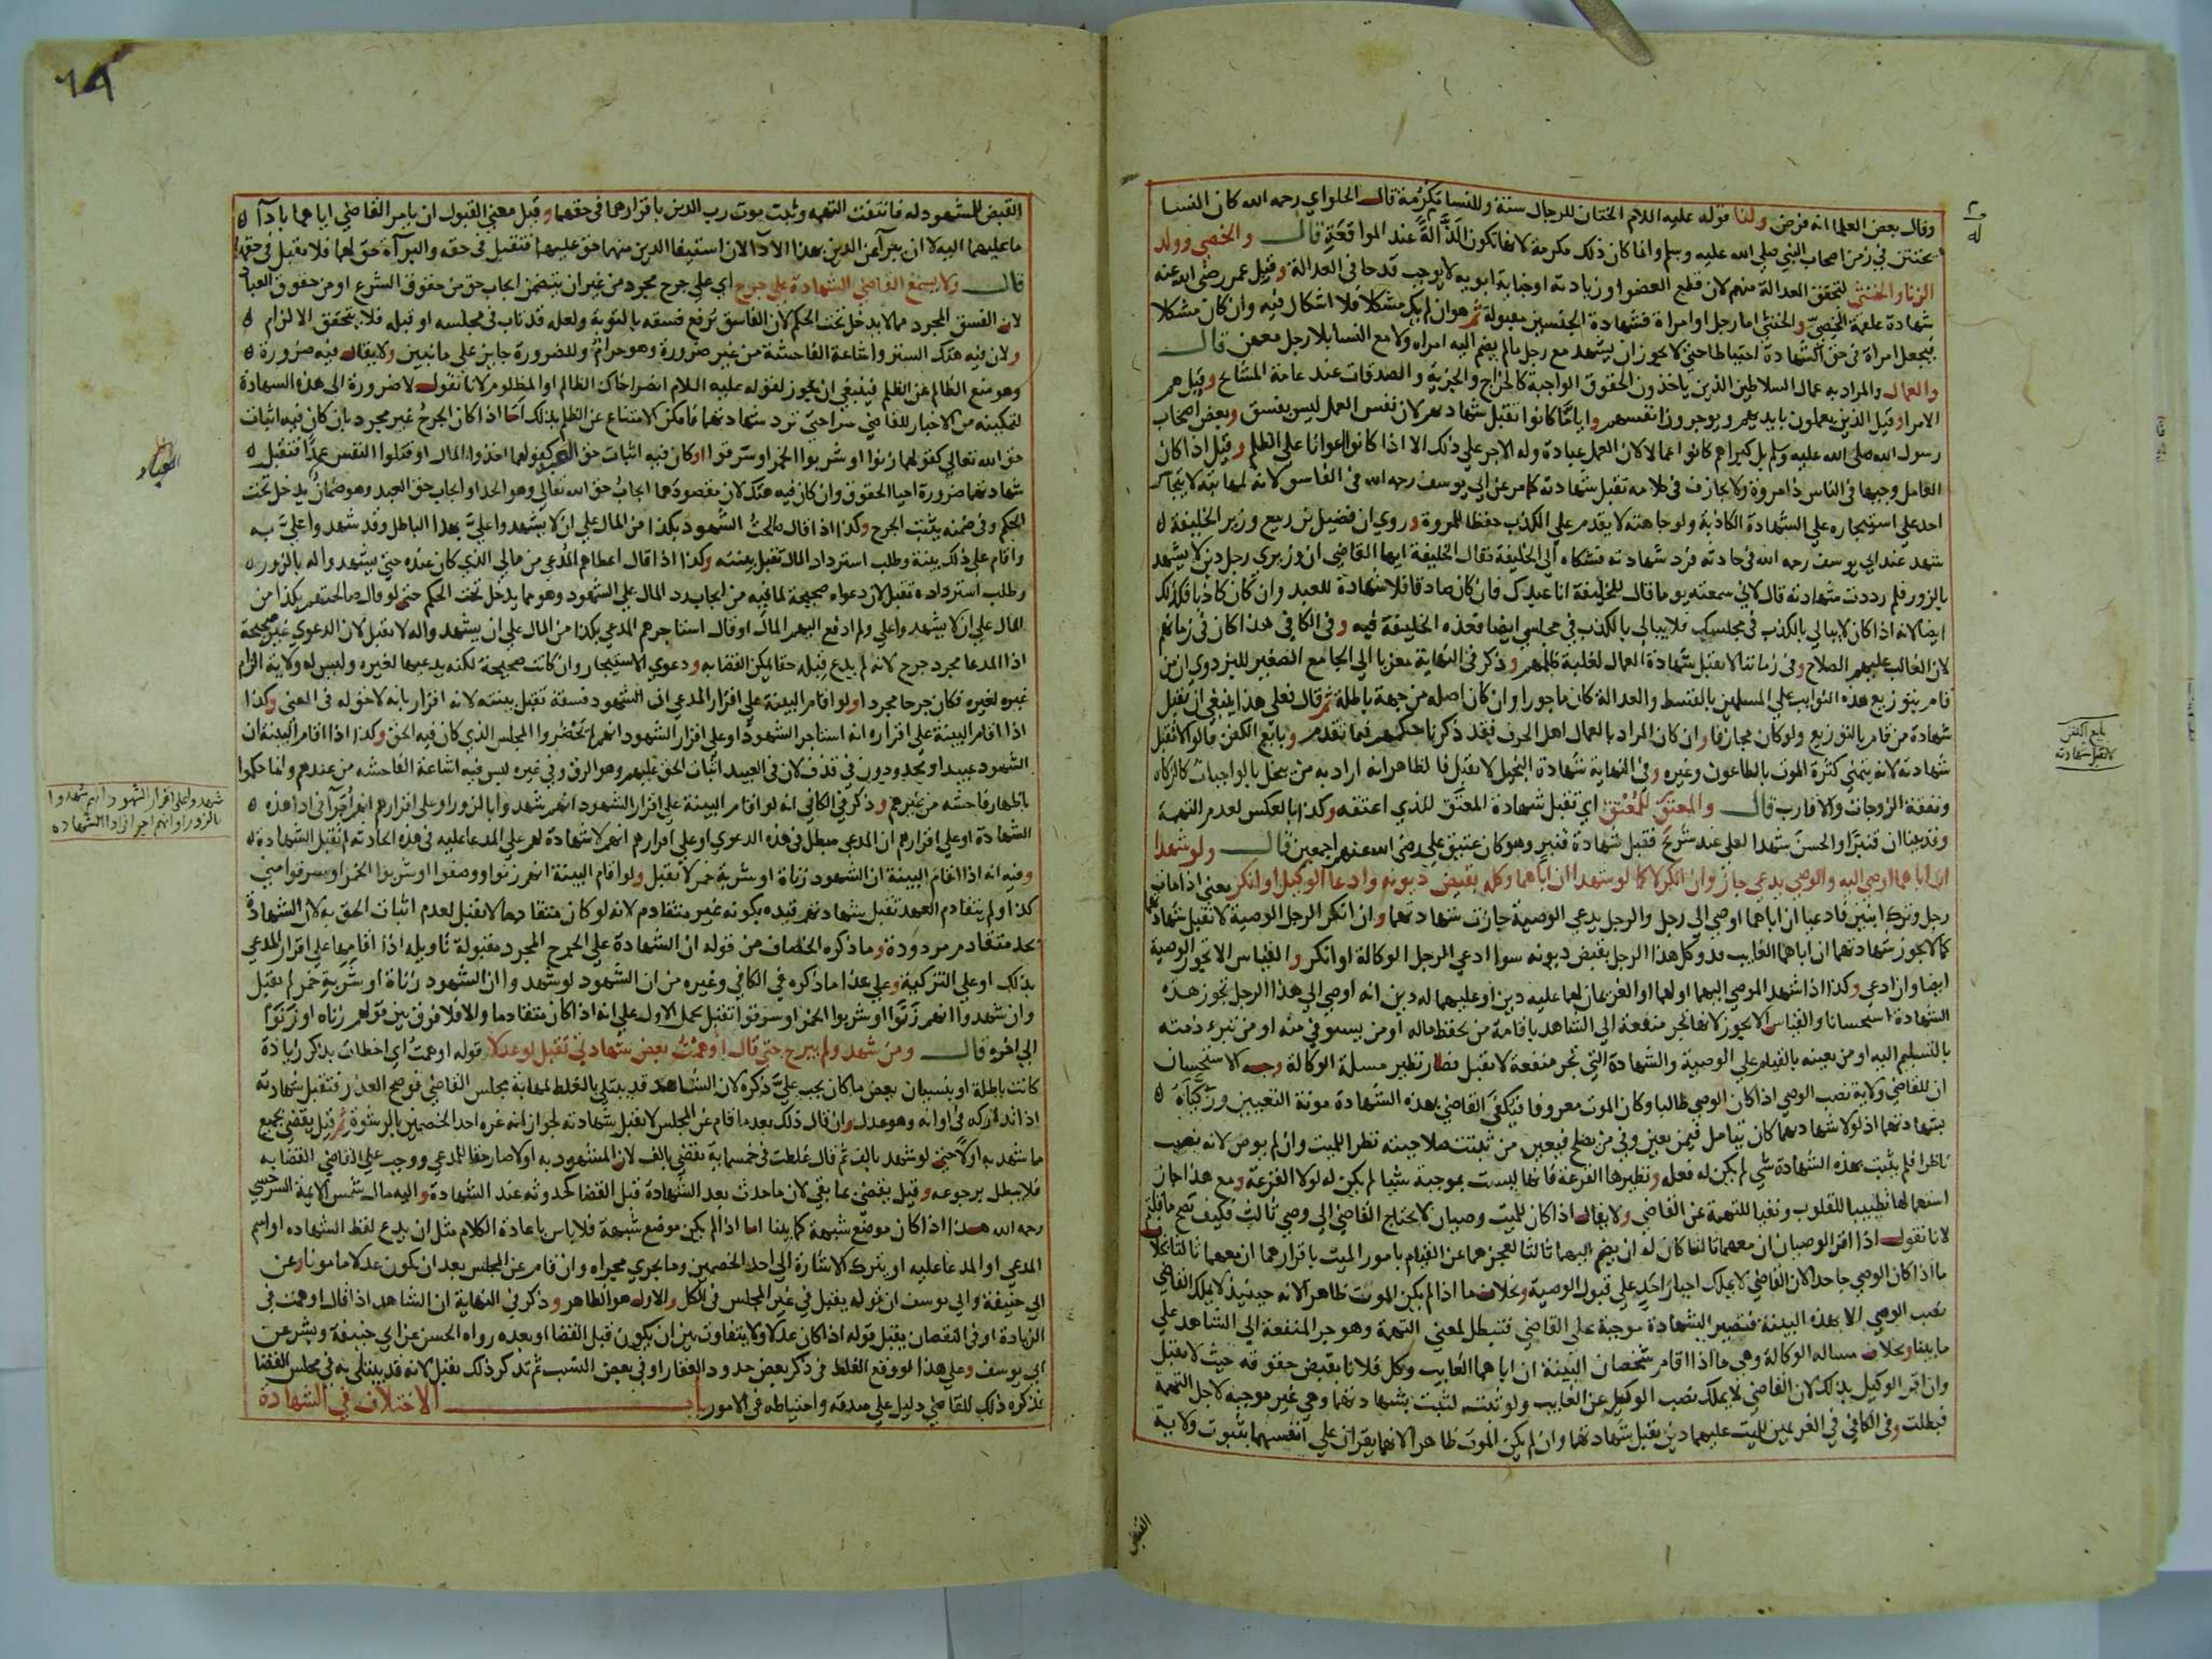 وقال بعض العلما انه فرض ولنا قوله عليه اللام الختان للرجال سنة وللنسا مكرمة قال الحلواي رحمه الله كان النسا
يختتن في زمن اصحاب النبي صلي الله عليه وسلم وانما كان ذلك مكرمة لانها تكون الذ له عند المواقعة قال والخصي وولد
الزنا والخنثي لتحقق العدالة منهم لان قطع العضو او زيادته او جناية ابويه لا يوجب قدحا في العدالة وقبل عمر رضي الله عنه
شهادة علقمة الخصي والخنثي اما رجل او امراة فشهادة الجنسين مقبولة ثم هو ان لم يكن مشكلا فلا اشكال فيه وان كان مشكلا
فيجعل امراة في حق الشهادة احتياطا حتي لا يجوز ان يشهد مع رجل مالم يضم اليه امراه ولا مع النسا بلا رجل معهن قال
والعمال والمراد به عمال السلاطين الذين ياخذون الحقوق الواجبة كالخراج والجزية والصدقات عند عامة المشايخ وقيل هم
الامرا وقيل الذين يعملون بايديهم ويوجرون انفسهم واياما كانوا تقبل شهادتهم لان نفس العمل ليس بفسق وبعض اصحاب
رسول الله صلي الله عليه وسلم بل كبراهم كانوا عمالا لان العمل عبادة وله الاجر علي ذلك الا اذا كانوا اعوانا علي الظلم وقيل اذا كان
العامل وجيها في الناس ذا مروة ولا يجازف في كلامه تقبل شهادته كما مر عن ابي يوسف رحمه الله في الفاسق لانه لمهابته لا يتجاسر
احد علي استيجاره علي الشهادة الكاذبة ولوجاهته لا يقدم علي الكذب حفظا للمروة وروي ان فضيل بن ربيع وزير الخليفة
شهد عند ابي يوسف رحمه الله في حادثة فرد شهادته فشكاه الي الخليفة فقال الخليفة ايها القاضي ان وزيري رجل دين لا يشهد
بالزور فلم رددت شهادته قال لاني سمعته يوما قال للخليفة انا عبدك فان كان صادقا فلا شهادة للعبد وان كان كاذبا فكذلك
ايضا لانه اذا كان لا يبالي بالكذب في مجلسك فلا يبالي بالكذب في مجلسي ايضا فعذره الخليفة فيه وفي الكافي هذا كان في زمانهم
لان الغالب عليهم الصلاح وفي زماننا لا تقبل شهادة العمال لغلبة ظلمهم وذكر في النهاية معزيا الي الجامع الصغير للبزدوي ان من
قام بتوزيع هذه النوايب علي المسلمين بالقسط والعدالة كان ماجورا وان كان اصله من جهة باطلة ثم قال فعلي هذا ينبغي ان تقبل
شهادة من قام بالتوزيع ولو كان مجازفا وان كان المراد بالعمال اهل الحرف فقد ذكرنا حكمهم فيما تقدم وبايع الكفن قالوا لا تقبل
شهادته لانه يتمني كثرة الموت بالطاعون وغيره وفي النهاية شهادة البخيل لا تقبل فالظاهر انه اراد به من يبخل بالواجبات كالزكاه
ونفقة الزوجات والاقارب قال والمعتق للمعتق اي تقبل شهادة المعتق للذي اعتقه وكذا بالعكس لعدم التهمة
وقد بينا ان قنبرا والحسن شهدا لعلي عند شريح فقبل شهادة قنبر وهو كان عتيق علي رضي الله عنهم اجمعين قال ولو شهدا
ان اباهما اوصي اليه والوصي يدعي جاز وان انكر لا كما لو شهدا ان اباهما وكله بقبض ديونه وادعا الوكيل او انكر يعني اذا مات
رجل وترك ابنين فادعيا ان اباهما اوصي الي رجل والرجل يدعي الوصية جازت شهادتهما وان انكر الرجل الوصية لا تقبل شهادتهما
كما لا يجوز شهادتهما ان اباهما الغايب قد وكل هذا الرجل بقبض ديونه سوا ادعي الرجل الوكالة او انكر والقياس الا تجوز الوصية
ايضا وان ادعي وكذا اذا شهد الموصي اليهما او لهما او الغريمان لهما عليه دين او عليهما له دين انه اوصي الي هذا الرجل تجوز هذه
الشهادة استحسانا والقياس الا يجوز لانها تجر منفعة الي الشاهد باقامة من يحفظ ماله او من يستوفي منه او من تبرء ذمته
بالتسليم اليه او من يعينه بالقيام علي الوصية والشهادة التي تجر منفعة لا تقبل فصار نظير مسلة الوكالة وجه الاستحسان
ان للقاضي ولاية نصب الوصي اذا كان الوصي طالبا وكان الموت معروفا فيكفي القاضي بهذه الشهادة مونة التعيين وزكياه
بشهادتهما اذ لولا شهادتهما كان يتامل فيمن يعين وفي من يصلح فيعين من ثبتت صلاحيته نظرا للميت وان لم يوص لانه نصب
ناظرا فلم يثبت بهذه الشهادة شي لم يكن له فعله ونظيرها القرعة فانها ليست بموجبة شيا لم يكن له لولا القرعة ومع هذا جاز
استعمالها تطييبا للقلوب ونفيا للتهمة عن القاضي ولا يقال اذا كان للميت وصيان لا يحتاج القاضي الي وصي ثالث فكيف تصح
لانا نقول اذا اقر الوصيان ان معهما ثالثا كان له ان يضم اليهما ثالثا لعجزهما عن القيام بامور الميت باقرارهما ان معهما ثالثا بخلاف
ما اذا كان الوصي جاحدا لان القاضي لا يملك اجبار احد علي قبول الوصية وبخلاف ما اذا لم يكن الموت ظاهرا لانه حينيذ لا يملك القاضي
نصب الوصي الا بهذه البينة فتصير الشهادة موجبة علي القاضي فتبطل لمعني التهمة وهو جر المنفعة الي الشاهد علي
ما بينا وبخلاف مساله الوكالة وهي ما اذا اقام شخصان البينة ان اباهما الغايب وكل فلانا بقبض حقوقه حيث لا تقبل
وان اقر الوكيل بذلك لان القاضي لا يملك نصب الوكيل عن الغايب ولو ثبتت لثبتت بشهادتهما وهي غير موجبة لاجل التهمة
فبطلت وفي الكافي في الغريمين للميت عليهما دين تقبل شهادتهما وان لم يكن الموت ظاهرا لانهما يقران علي انفسهما بثبوت ولاية
القبض
بايع الكفن
لا تقبل شهادته
القبض للمشهود له فانتفت التهمه وثبت موت رب الدين باقرارهما في حقهما وقيل معني القبول ان يامر القاضي اياهما باداء
ما عليهما اليه لا ان يبرآ عن الدين بهذا الاداء لان استيفا الدين منهما حق عليهما فتقبل في حقه والبراة حق لهما فلا تقبل في حقهما
قال ولا يسمع القاضي الشهادة علي جرح اي علي جرح مجرد من غير ان يتضمن ايجاب حق من حقوق الشرع او من حقوق العباد
لان الفسق المجرد مما لا يدخل تحت الحكم لان الفاسق يرفع فسقه بالتوبة ولعله قد تاب في مجلسه او قبله فلا يتحقق الالزام
ولان فيه هتك الستر واشاعة الفاحشة من غير ضرورة وهو حرام وللضرورة جايز علي ما نبين ولا يقال فيه ضرورة
وهو منع الظالم عن الظلم فينبغي ان يجوز لقوله عليه اللام انصر اخاك الظالم او المظلوم لانا نقول لا ضرورة الي هذه الشهادة
لتمكينه من الاخبار للقاضي سرا حتي ترد شهادتهما فامكن الامتناع عن الظلم بذلك اما اذا كان الجرح غير مجرد بان كان فيه اثبات
حق الله تعالي كقولهما زنوا او شربوا الخمر او سرقوا او كان فيه اثبات حق العبد كقولهما اخذوا المال او قتلوا النفس عمدا فتقبل
شهادتهما ضرورة احيا الحقوق وان كان فيه هتك لان مقصودهما ايجاب حق الله تعالي وهو الحد او ايجاب حق العبد وهو ضمان يدخل تحت
الحكم وفي ضمنه يثبت الجرح وكذا اذا قال صالحت الشهود بكذا من المال علي ان لا يشهدوا علي بهذا الباطل وقد شهدوا علي به
واقام علي ذلك بينة وطلب استرداد المال تقبل بينته وكذا اذا قال اعطاهم المدعي من مالي الذي كان عنده حتي يشهدوا له بالزور
وطلب استرداده تقبل لان دعواه صحيحة لما فيه من ايجاب رد المال علي الشهود وهو مما يدخل تحت الحكم حتي لو قال صالحتهم بكذا من
المال علي ان لا يشهدوا علي ولم ادفع اليهم المال او قال استاجرهم المدعي بكذا من المال علي ان يشهدوا له لا تقبل لان الدعوي غير صحيحة
اذا المدعا مجرد جرح لانه لم يدع قبله حقا يمكن القضا به ودعوي الاستيجار وان كانت صحيحة لكنه يدعيها لغيره وليس له ولاية الزام
غيره لغيره فكان جرحا مجردا ولو اقام البينة علي اقرار المدعي ان الشهود فسقة تقبل بينته لانه اقرار بانه لا حق له في المعني وكذا
اذا اقام البينة علي اقراره انه استاجر الشهود او علي اقرار الشهود انهم لم يحضروا المجلس الذي كان فيه الحق وكذا اذا اقام البينة ان
الشهود عبيد او محدودون في قذف لان في العبيد اثبات الحق عليهم وهو الرق وفي غيره ليس فيه اشاعة الفاحشه من عندهم وانما حكوا
باظهار فاحشه من غيرهم وذكر في الكافي انه لو اقام البينة علي اقرار الشهود انهم شهدوا بالزور او علي اقرارهم انهم اجرآ في ادا هذه
الشهادة او علي اقرارهم ان المدعي مبطل في هذه الدعوي او علي اقرارهم انهم لا شهادة لهم علي المدعا عليه في هذه الحادثه لم تقبل الشهادة
وفيه انه اذا اقام البينة ان الشهود زناة او شربة خمر لا تقبل ولو اقام البينة انهم زنوا ووصفوا او شربوا الخمر او سرقوا مني
كذا ولم يتقادم العهد تقبل شهادتهم قيده بكونه غير متقادم لانه لو كان متقادما لا تقبل لعدم اثبات الحق به لان الشهادة
بحد متقادم مردودة وما ذكره الخصاف من قوله ان الشهادة علي الجرح المجرد مقبولة تاويله اذا اقامها علي اقرار المدعي
بذلك او علي التزكية وعلي هذا ما ذكره في الكافي وغيره من ان الشهود لو شهدوا ان الشهود زناة او شربة خمر لم تقبل
وان شهدوا انهم زنوا او شربوا الخمر او سرقوا تقبل يحمل الاول علي انه اذا كان متقادما والا فلا فرق بين قولهم زناه او زنوا
الي اخره قال ومن شهد ولم يبرح حتي قال اوهمت بعض شهادتي تقبل لو عدلا قوله اوهمت اي اخطات بذكر زيادة
كانت باطلة او بنسيان بعض ما كان يجب علي ذكره لان الشاهد قد يبتلي بالغلط لمهابة مجلس القاضي فوضح العذر فتقبل شهادته
اذا تداركه في اوانه وهو عدل وان قال ذلك بعد ما قام عن المجلس لا تقبل شهادته لجواز انه غره احد الخصمين بالرشوة ثم قيل يقضي بجميع
ما شهد به اولا حتي لو شهد بالف ثم قال غلطت في خمسماية يقضي بالف لان المشهود به اولا صار حقا للمدعي ووجب علي القاضي القضا به
فلا يبطل برجوعه وقيل يقضي بما بقي لان ما حدث بعد الشهادة قبل القضا كحدوثه عند الشهادة واليه مال شمس الايمة السرخسي
رحمه الله هذا اذا كان موضع شبهة كما بينا اما اذا لم يكن موضع شبهة فلا باس باعادة الكلام مثل ان يدع لفظ الشهاده او اسم
المدعي او المدعا عليه او يترك الاشارة الي احد الخصمين وما يجري مجراه وان قام عن المجلس بعد ان يكون عدلا مامونا وعن
ابي حنيفة وابي يوسف ان قوله يقبل في غير المجلس في الكل والاول هو الظاهر وذكر في النهاية ان الشاهد اذا قال اوهمت في
الزيادة او في النقصان يقبل قوله اذا كان عدلا ولا يتفاوت بين ان يكون قبل القضا او بعده رواه الحسن عن ابي حنيفة وبشر عن
ابي يوسف وعلي هذا لو وقع الغلط في ذكر بعض حدود العقار او في بعض النسب ثم تذكر ذلك تقبل لانه قد يبتلي به في مجلس القضا
فذكره ذلك للقاضي دليل علي صدقه واحتياطه في الامور باب الاختلاف في الشهادة
العباد
شهدوا علي اقرار الشهود انهم شهدوا
بالزور او انهم اجرا في ادا الشهاده